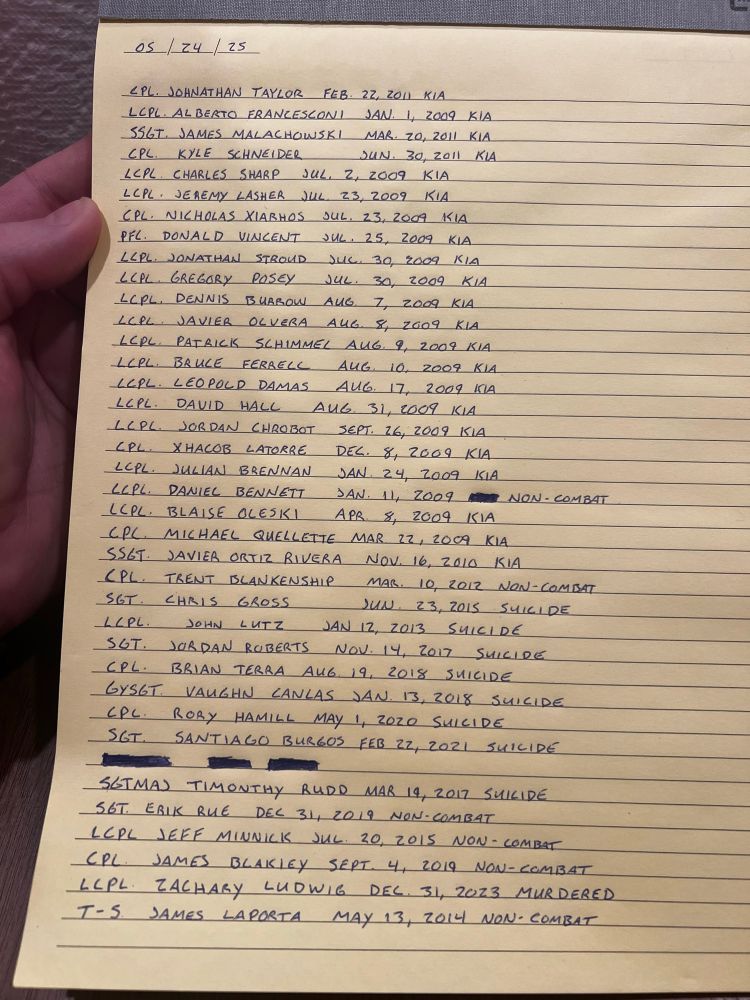 05/24/25
CPL. JOHNATHAN TAYLOR FEB. 22, 2011 KIA
LCPL. ALBERTO FRANCESCONI JAN. 1, 2009 KIA
SSGT. JAMES MALACHOWSKI MAR. 20, 2011 KIA
CPL. KYLE SCHNEIDER JUN. 30, 2011 KIA
LCPL. CHARLES SHARP JUL. 2, 2009 KIA
LCPL. JEREMY LASHER JUL. 23, 2009 KIA
CPL. NICHOLAS XIARHOS JUL. 23, 2009 KIA
PFC. DONALD VINCENT JUL. 25, 2009 KIA
LCPL. JONATHAN STROUD JUL. 30, 2009 KIA
LCPL. GREGORY POSEY JUL. 30, 2009 KIA
LCPL. DENNIS BURROW AUG. 7, 2009 KIA
LCPL. JAVIER OLVERA AUG. 8, 2009 KIA
LCPL. PATRICK SCHIMMEL AUG. 9, 2009 KIA
LCPL. BRUCE FERRELL AUG. 10, 2009 KIA
LCPL. LEOPOLD DAMAS AUG. 17, 2009 KIA
LCPL. DAVID HALL AUG. 31, 2009 KIA
LCPL. JORDAN CHROBOT SEPT. 26, 2009 KIA
CPL. XHACOB LATORRE DEC. 8, 2009 KIA
LCPL. JULIAN BRENNAN JAN. 24, 2009 KIA
LCPL. DANIEL BENNETT JAN. 11, 2009 NON-COMBAT
LCPL. BLAISE OLESKI APR. 8, 2009 KIA
CPL. MICHAEL OUELLETTE MAR 22, 2009 KIA
SSGT. JAVIER ORTIZ RIVERA NOV. 16, 2010 KIA
CPL. TRENT BLANKENSHIP MAR. 10, 2012 NON-COMBAT
SGT. CHRIS GROSS JUN. 23, 2015 SUICIDE
LCPL. JOHN LUTZ JAN 12, 2013 SUICIDE
SGT. JORDAN ROBERTS NOV. 14, 2017 SUICIDE
CPL. BRIAN TERRA AUG. 19, 2018 SUICIDE
GYSGT. VAUGHN CANLAS JAN. 13, 2018 SUICIDE
CPL. RORY HAMILL MAY 1, 2020 SUICIDE
SGT. SANTIAGO BURGOS FEB 22, 2021 SUICIDE
SGTMAJ TIMONTHY RUDD MAR 19, 2017 SUICIDE
SGT. ERIK RUE DEC 31, 2019 NON-COMBAT
LCPL JEFF MINNICK JUL. 20, 2015 NON-COMBAT
CPL. JAMES BLAKLEY SEPT. 4, 2019 NON-COMBAT
LCPL. ZACHARY LUDWIG DEC. 31, 2023 MURDERED
T-5. JAMES LAPORTA MAY 13, 2014 NON-COMBAT